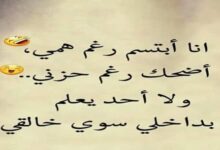 انا أبتسم رغم همي،
أضحك رغم حزني..
ولا أحد يعلم
بداخلي سوي خالقي